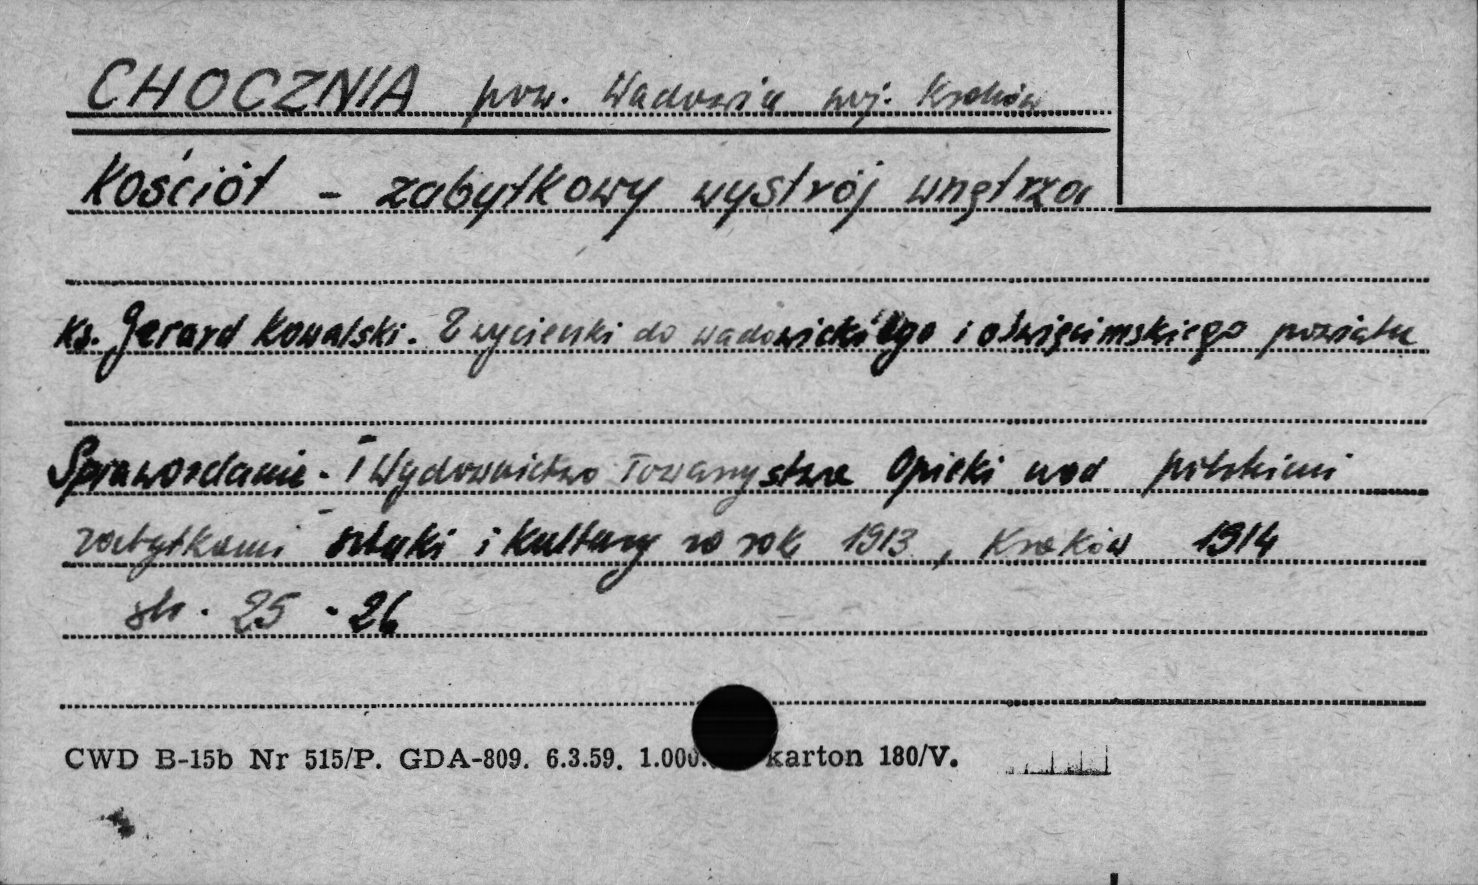 CHOCZNIA pow. Wadowice woj. Kraków
Kościół - zabytkowy wystrój wnętrza
Ks. Gerard Kowalski. Z wycieczki do wadowickiego i oświęcimskiego powiatu
Sprawozdanie i Wydawnictwo Towarzystwa Opieki nad polskimi
zabytkami sztuki i kultury za rok 1913, Kraków 1914
str. 25-26
CWD B-15b Nr 515/P. GDA-809. 6.3.59. 1.000. karton 180/V.